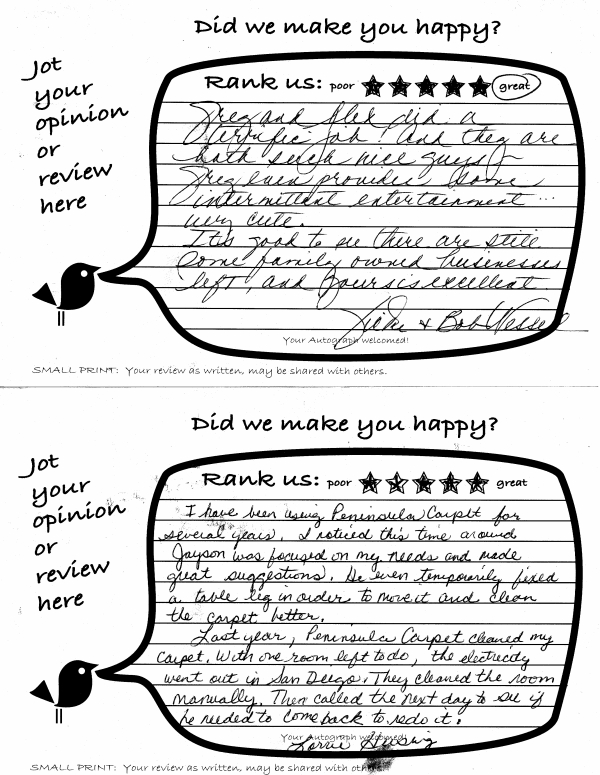 Did we make you happy?
Jot
your
opinion
or
review
here
Rank us: poor great
Greg and Alex did a
terrific job! And they are
both such nice guys!
Greg even provides some
intermittent entertainment ...
very cute.
It's good to see there are still
some family owned businesses
left, and yours is excellent.
Vicki & Bob Wessel
Your Autograph welcomed!
SMALL PRINT: Your review as written, may be shared with others.
Did we make you happy?
Jot
your
opinion
or
review
here
Rank us: poor great
I have been using Peninsula Carpet for
several years. I noticed this time around
Jayson was focused on my needs and made
great suggestions. He even temporarily fixed
a table leg in order to move it and clean
the carpet better.
Last year, Peninsula Carpet cleaned my
carpet. With one room left to do, the electricity
went out in San Diego. They cleaned the room
manually. Then called the next day to see if
he needed to come back to redo it.
Your Autograph welcomed!
Lorrie
SMALL PRINT: Your review as written, may be shared with others.